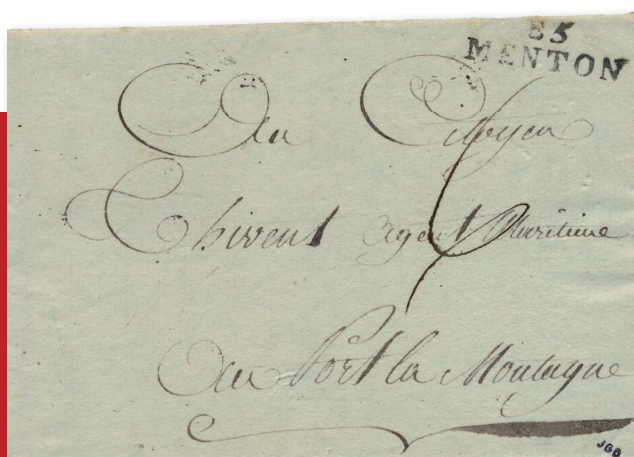 85
MENTON
Au Citoyen
Thivent agent Maritime
au Port la Montagne
JGO